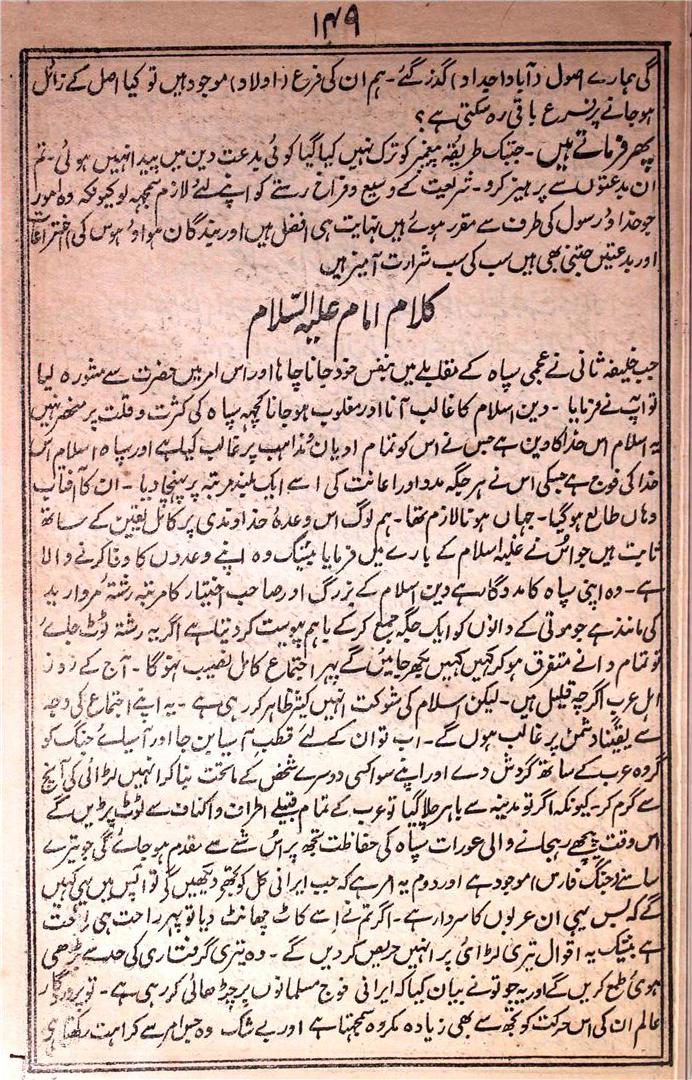 ۱۴۹
گی ہمارے اصول (آباؤ اجداد) گذر گئے۔ ہم ان کی فرع (اولاد) موجود ہیں تو کیا اصل کے زائل
ہو جانے پر فرع باقی رہ سکتی ہے؟
پھر فرماتے ہیں۔ جبتک طریقۂ پیغمبر کو ترک نہیں کیا گیا کوئی بدعت دین میں پیدا نہیں ہوئی۔ تم
ان بدعتوں سے پرہیز کرو۔ شریعت کے وسیع و فراخ رستے کو اپنے لئے لازم سمجہہ لو کیونکہ وہ امور
جو خدا و رسول کی طرف سے مقرر ہوئے ہیں نہایت ہی افضل ہیں اور بندگان ہوا و ہوس کی اختراعات
اور بدعتیں جتنی بھی ہیں سب کی سب شرارت آمیز ہیں
کلام امام علیہ السّلام
جب خلیفہ ثانی نے عجمی سپاہ کے مقابلے میں بنفس خود جانا چاہا اور اس امر میں حضرت سے مشورہ لیا
تو آپ نے فرمایا۔ دین اسلام کا غالب آنا اور مغلوب ہو جانا کچہہ سپاہ کی کثرت و قلت پر منحصر نہیں
یہ اسلام اس خدا کا دین ہے جس نے اس کو تمام ادیان و مذاہب پر غالب کیا ہے اور سپاہ اسلام اس
خدا کی فوج ہے جسکی اس نے ہر جگہ مدد اور اعانت کی اسے ایک بلند مرتبہ پر پہنچا دیا۔ ان کا آفتاب
وہاں طالع ہو گیا۔ جہاں ہونا لازم تھا۔ ہم لوگ اس وعدۂ خداوندی پر کامل یقین کے ساتھ
ثابت ہیں جو اس نے غلبۂ اسلام کے بارے میں فرمایا بیشک وہ اپنے وعدوں کا وفا کرنے والا
ہے۔ وہ اپنی سپاہ کا مددگار ہے دین اسلام کے بزرگ اور صاحب اختیار کا مرتبہ رشتۂ مروارید
کی مانند ہے جو موتی کے دانوں کو ایک جگہ جمع کر کے باہم پیوست کر دیتا ہے اگر یہ رشتہ ٹوٹ جائے
تو تمام دانے متفرق ہو کر کہیں کہیں بکھر جائیں گے پہر اجتماع کامل نصیب نہوگا۔ آج کے روز
اہل عرب اگرچہ قلیل ہیں۔ لیکن اسلام کی شوکت انہیں کثیر ظاہر کر رہی ہے۔ یہ اپنے اجتماع کی وجہ
سے یقیناً دشمن پر غالب ہوں گے۔ اب تو ان کے لئے قطب آسیا بن جا اور آسیائے جنگ کو
گروہ عرب کے ساتھ گردش دے اور اپنے سوا کسی دوسرے شخص کے ماتحت بنا کر انہیں لڑائی کی آنچ
سے گرم کر۔ کیونکہ اگر تو مدینہ سے باہر چلا گیا تو عرب کے تمام قبیلے اطراف و اکناف سے ٹوٹ پڑیں گے
اس وقت پیچھے رہجانے والی عورات سپاہ کی حفاظت تجھ پر اس شے سے مقدم ہو جائے گی جو تیرے
سامنے (جنگ فارس) موجود ہے اور دوم یہ امر ہے کہ جب ایرانی کل کو تجھے دیکھیں گے تو آپس میں یہی کہیں
گے کہ بس یہی ان عربوں کا سردار ہے۔ اگر تم نے اسے کاٹ چھانٹ دیا تو پہر راحت ہی راحت
ہے بیشک یہ اقوال تیری لڑائی پر انہیں حریص کر دیں گے۔ وہ تیری گرفتاری کی حد سے بڑھی
ہوئی طمع کریں گے اور یہ جو تو نے بیان کیا کہ ایرانی فوج مسلمانوں پر چڑھائی کر رہی ہے۔ تو پروردگار
عالم ان کی اس حرکت کو تجھ سے بھی زیادہ مکروہ سمجہتا ہے اور بے شک وہ جس امر سے کراہت رکھتا ہے